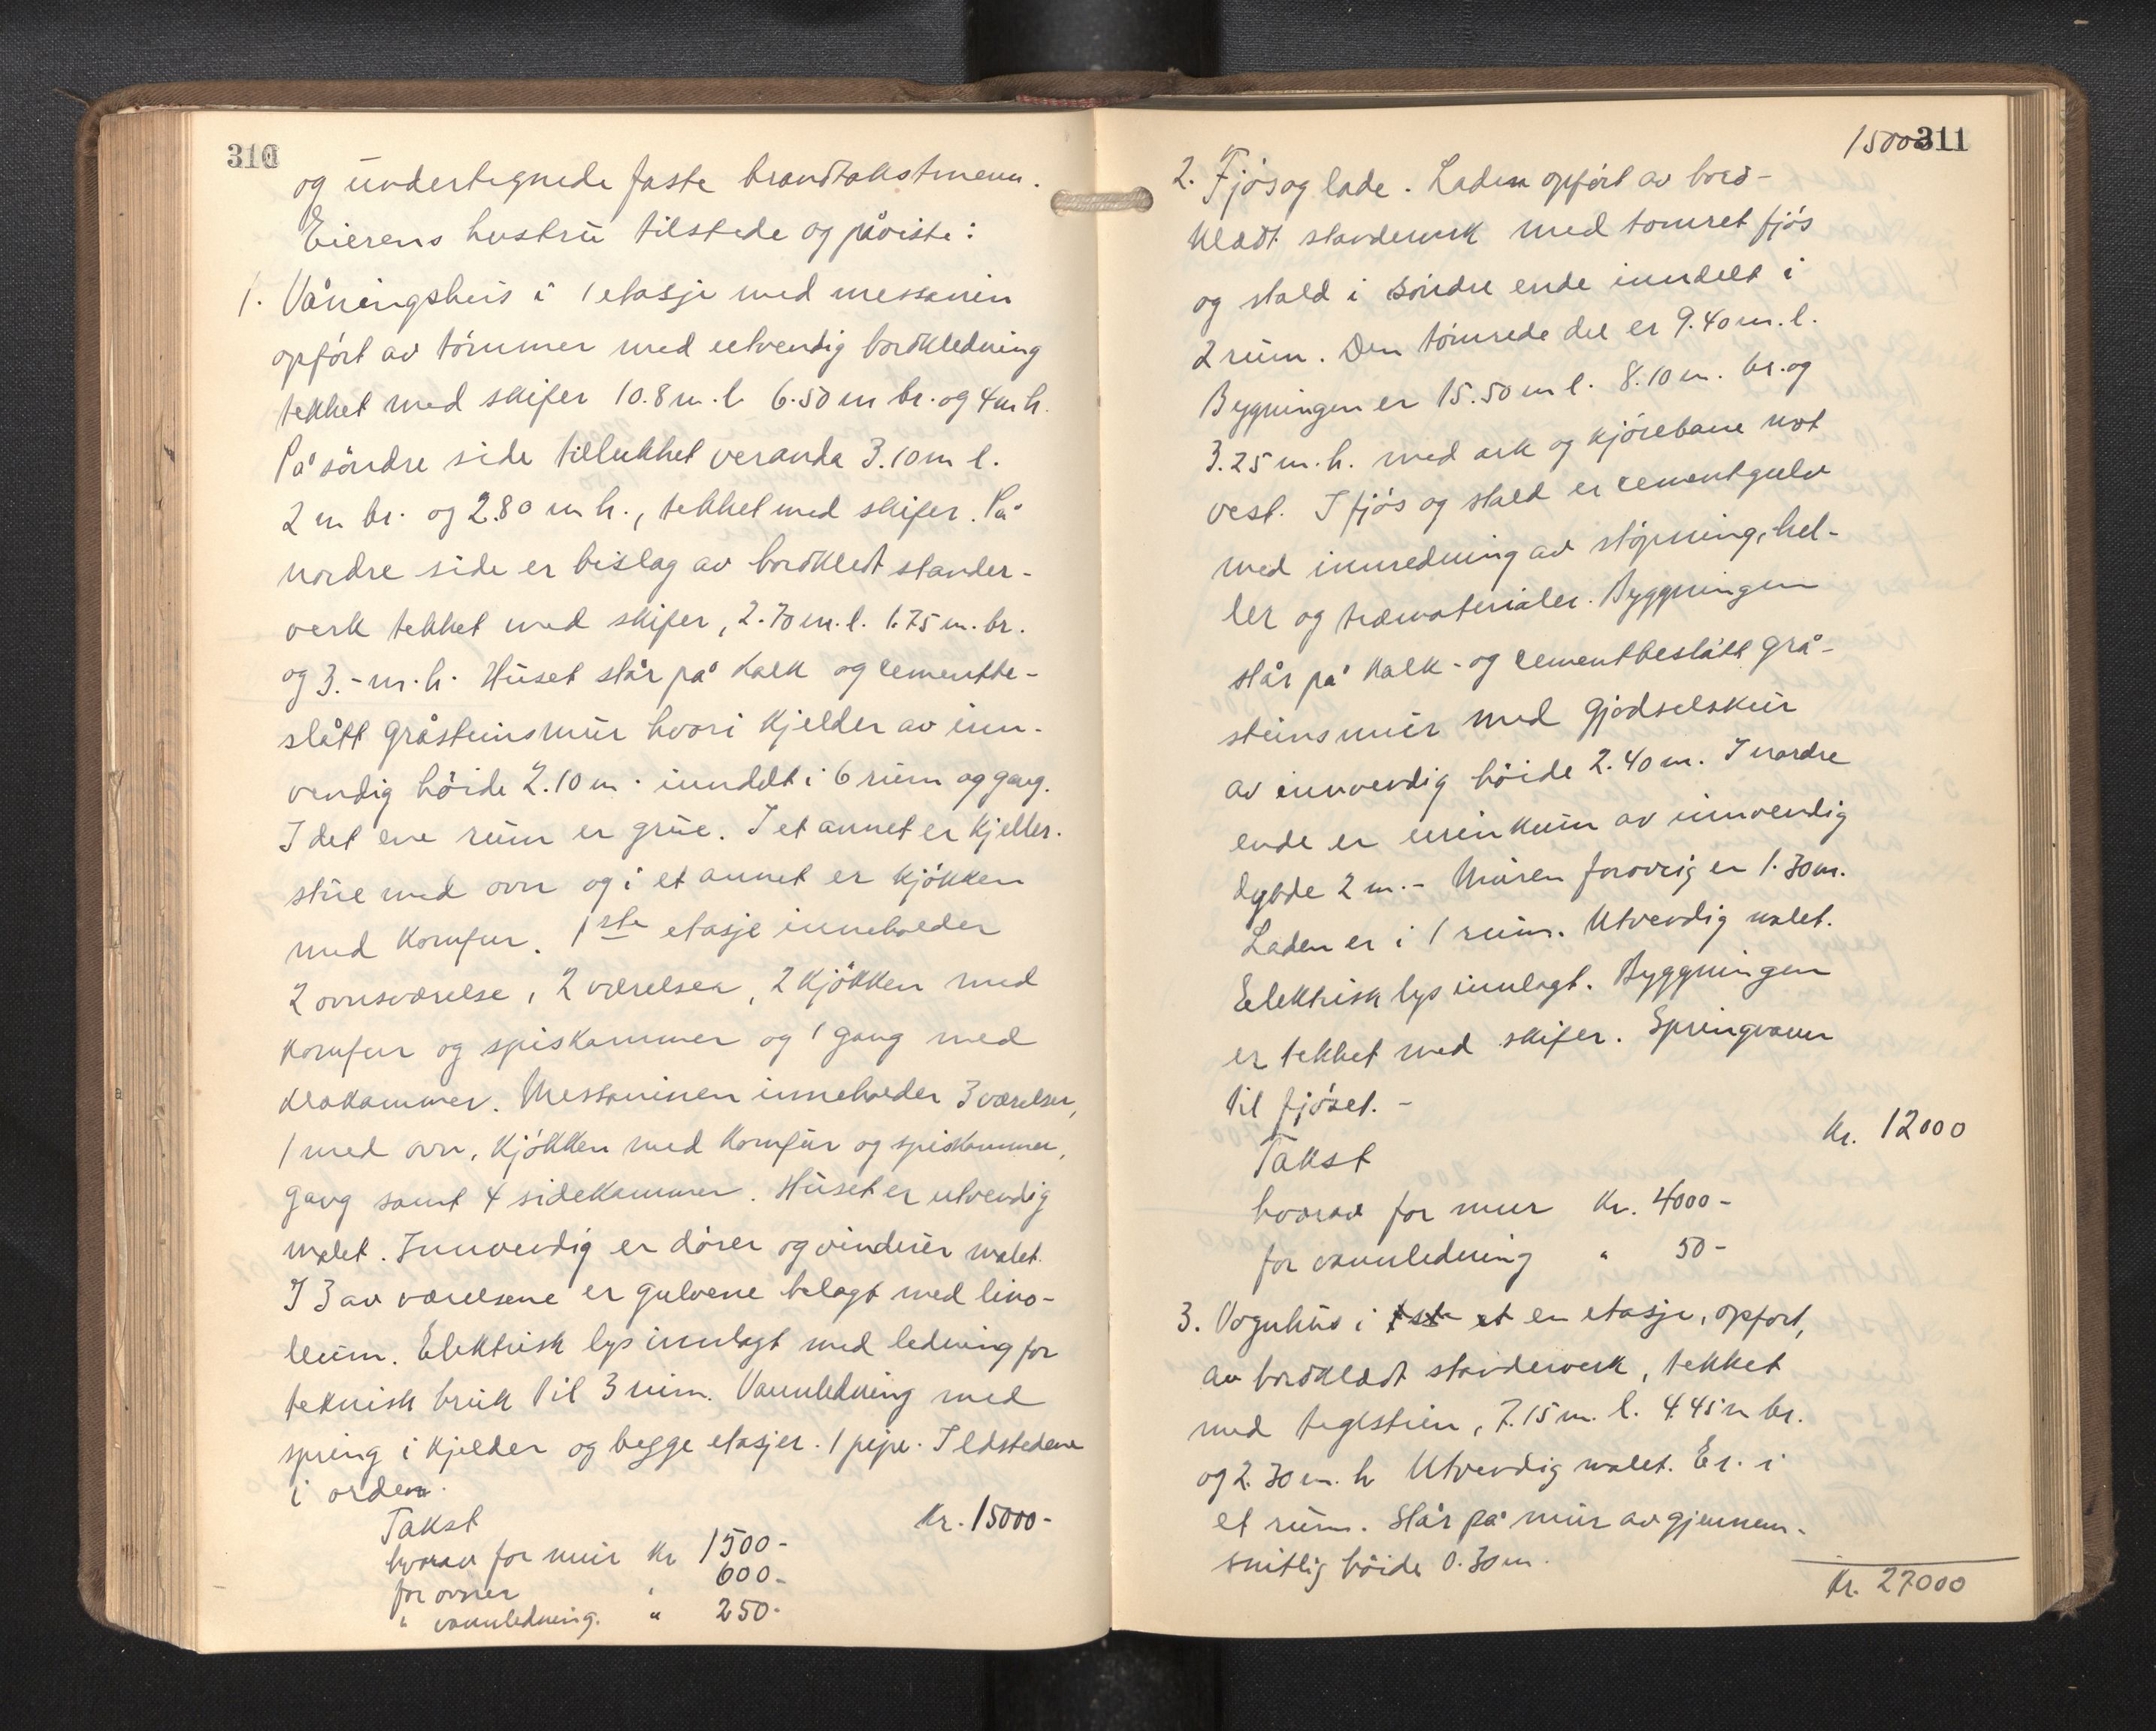 310
og undertegnede faste brandtakstmenn.
Eierens hustru tilstede og påviste:
1. Våningshus i 1 etasje med messanin
opført av tømmer med utvendig bordkledning
tekket med skifer 10.8 m. l. 6.50 m br. og 4 m h.
På søndre side tillukket veranda 3.10 m l.
2 m br. og 2.80 m h., tekket med skifer. På
nordre side er bislag av bordkledt stander-
verk tekket med skifer, 2.70 m. l. 1.75 m. br.
og 3.- m. h. Huset står på kalk og cementbe-
slått gråsteinsmur hvori kjelder av inn-
vendig höide 2.10 m. inndelt i 6 rum og gang.
I det ene rum er grue. I et annet er kjeller-
stue med ovn og i et annet er kjökken
med komfur. 1ste etasje inneholder
2 ovnsværelse, 2 værelser, 2 kjökken med
komfur og spiskammer og 1 gang med
klækammer. Messaninen inneholder 3 værelser,
1 med ovn, kjökken med komfur og spiskammer,
gang samt 4 sidekammer. Huset er utvendig
malet. Innvendig er dører og vinduer malet.
I 3 av værelsene er gulvene belagt med lino-
leum. Elektrisk lys innlagt med ledning for
teknisk bruk til 3 rum. Vannledning med
spring i kjelder og begge etasjer. 1 pipe. Ildstedene
i orden.
Takst Kr. 15000-
hvorav for mur Kr 1500-
for ovner " 600-
" vannledning. " 250-
311
15000
2. Fjös og lade. Laden opfört av bord-
klædt standerverk med tømret fjös
og stald i søndre ende inndelt i
2 rum. Den tømrede del er 9.40 m. l.
Bygningen er 15.50 m l. 8.10 m. br. og
3.25 m. h. med ark og kjörebane mot
vest. I fjös og stald er cementgulv
med innredning av stöpning, hel-
ler og træmaterialer. Byggningen
står på kalk- og cementbeslått grå-
steinsmur med gjødselskur
av innvendig höide 2.40 m. I nordre
ende er urinkum av innvendig
dybde 2 m.- Muren forövrig er 1.30 m.
Laden er i 1 rum. Utvendig malet.
Elektrisk lys innlagt. Byggningen
er tekket med skifer. Springvann
til fjöset. -
Takst Kr. 12000
hvorav for mur Kr. 4000-
for vannledning " 50-
3. Vognhus i en etasje, opført,
av bordklædt standerverk, tekket
med teglstein, 7.15 m. l. 4.45 m br.
og 2.30 m. h Utvendig malet. Er. i
et rum. Står på mur av gjennem-
snitlig höide 0.30 m.
Kr. 27000